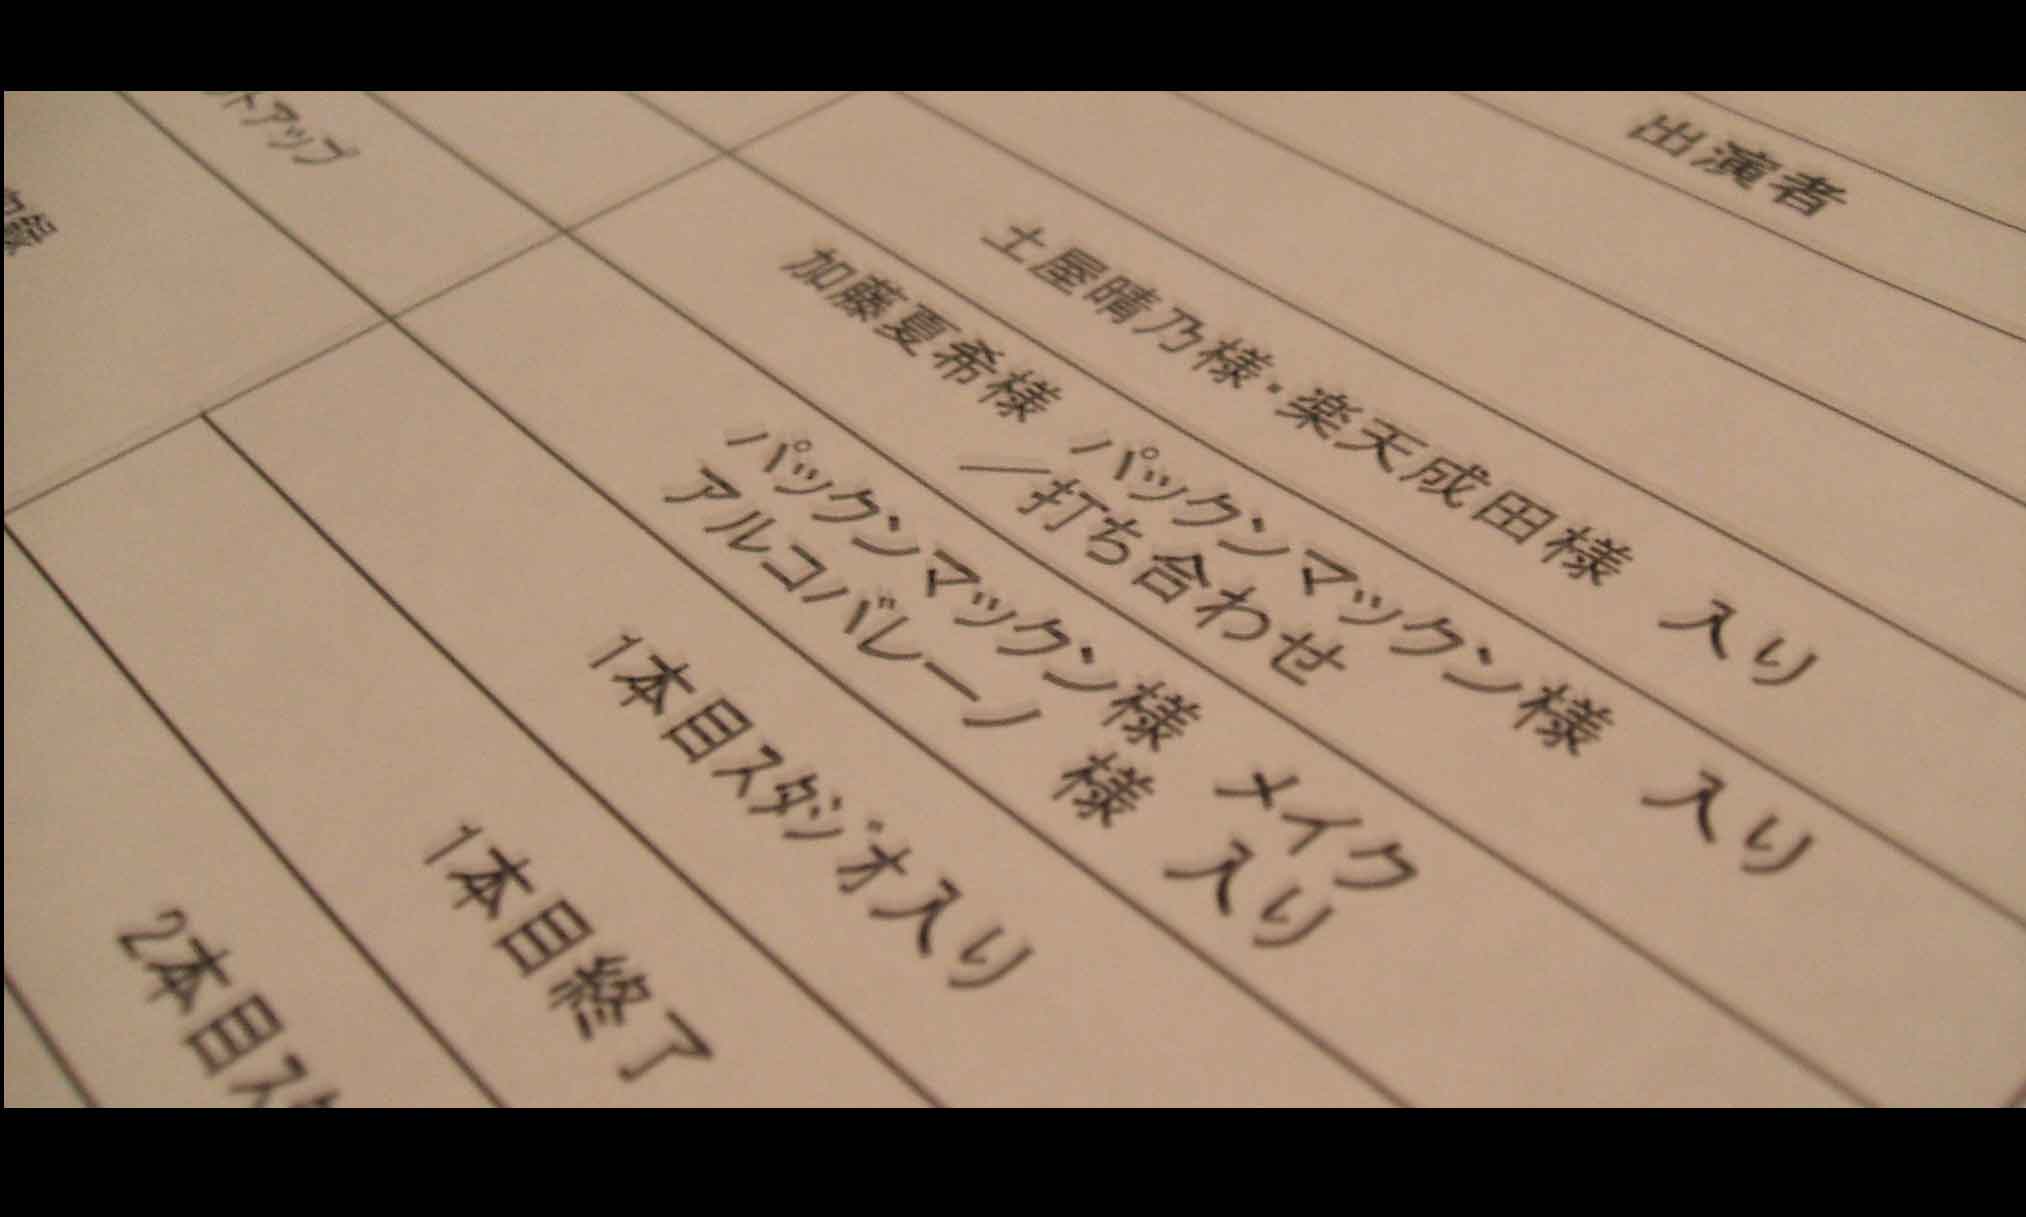 出演者
土屋晴乃様・楽天成田様　入り
加藤夏希様　パックンマックン様　入り
／打ち合わせ
パックンマックン様　メイク
アルコバレーノ　様　入り
1本目ｽﾀｼﾞｵ入り
1本目終了
2本目ｽﾀ
トアップ